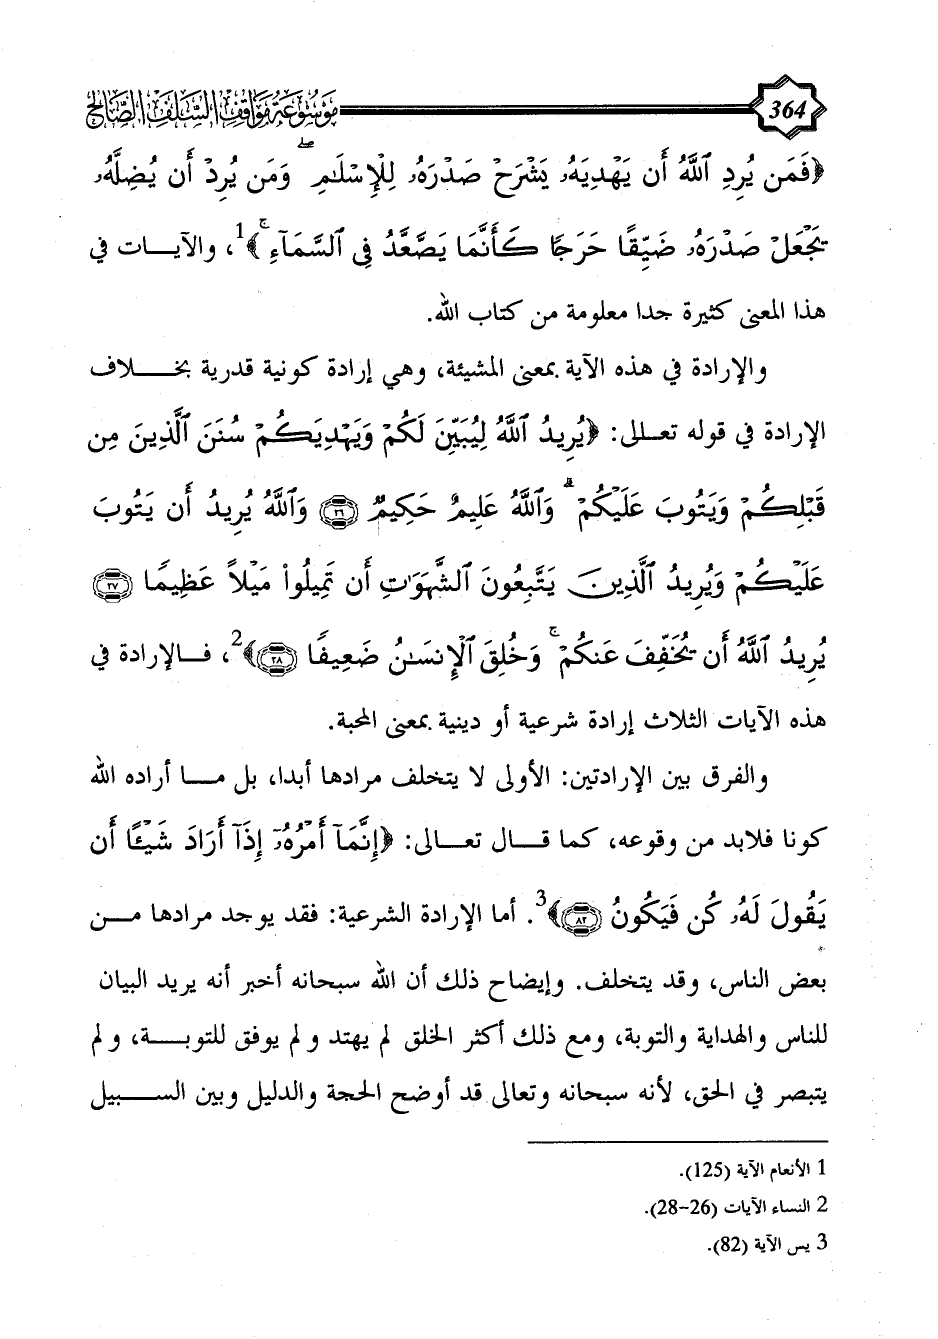 364 موسوعة مواقف السلف الصالح
﴿فَمَن يُرِدِ ٱللَّهُ أَن يَهْدِيَهُۥ يَشْرَحْ صَدْرَهُۥ لِلْإِسْلَٰمِ ۖ وَمَن يُرِدْ أَن يُضِلَّهُۥ
يَجْعَلْ صَدْرَهُۥ ضَيِّقًا حَرَجًا كَأَنَّمَا يَصَّعَّدُ فِى ٱلسَّمَآءِ ۚ﴾1، والآيات في
هذا المعنى كثيرة جدا معلومة من كتاب الله.
والإرادة في هذه الآية بمعنى المشيئة، وهي إرادة كونية قدرية بخلاف
الإرادة في قوله تعالى: ﴿يُرِيدُ ٱللَّهُ لِيُبَيِّنَ لَكُمْ وَيَهْدِيَكُمْ سُنَنَ ٱلَّذِينَ مِن
قَبْلِكُمْ وَيَتُوبَ عَلَيْكُمْ ۗ وَٱللَّهُ عَلِيمٌ حَكِيمٌ ﴿٢٦﴾ وَٱللَّهُ يُرِيدُ أَن يَتُوبَ
عَلَيْكُمْ وَيُرِيدُ ٱلَّذِينَ يَتَّبِعُونَ ٱلشَّهَوَٰتِ أَن تَمِيلُوا۟ مَيْلًا عَظِيمًا ﴿٢٧﴾
يُرِيدُ ٱللَّهُ أَن يُخَفِّفَ عَنكُمْ ۚ وَخُلِقَ ٱلْإِنسَٰنُ ضَعِيفًا ﴿٢٨﴾﴾2، فالإرادة في
هذه الآيات الثلاث إرادة شرعية أو دينية بمعنى المحبة.
والفرق بين الإرادتين: الأولى لا يتخلف مرادها أبدا، بل ما أراده الله
كونا فلابد من وقوعه، كما قال تعالى: ﴿إِنَّمَآ أَمْرُهُۥٓ إِذَآ أَرَادَ شَيْـًٔا أَن
يَقُولَ لَهُۥ كُن فَيَكُونُ ﴿٨٢﴾﴾3. أما الإرادة الشرعية: فقد يوجد مرادها من
بعض الناس، وقد يتخلف. وإيضاح ذلك أن الله سبحانه أخبر أنه يريد البيان
للناس والهداية والتوبة، ومع ذلك أكثر الخلق لم يهتد ولم يوفق للتوبة، ولم
يتبصر في الحق، لأنه سبحانه وتعالى قد أوضح الحجة والدليل وبين السبيل
1 الأنعام الآية (125).
2 النساء الآيات (26-28).
3 يس الآية (82).